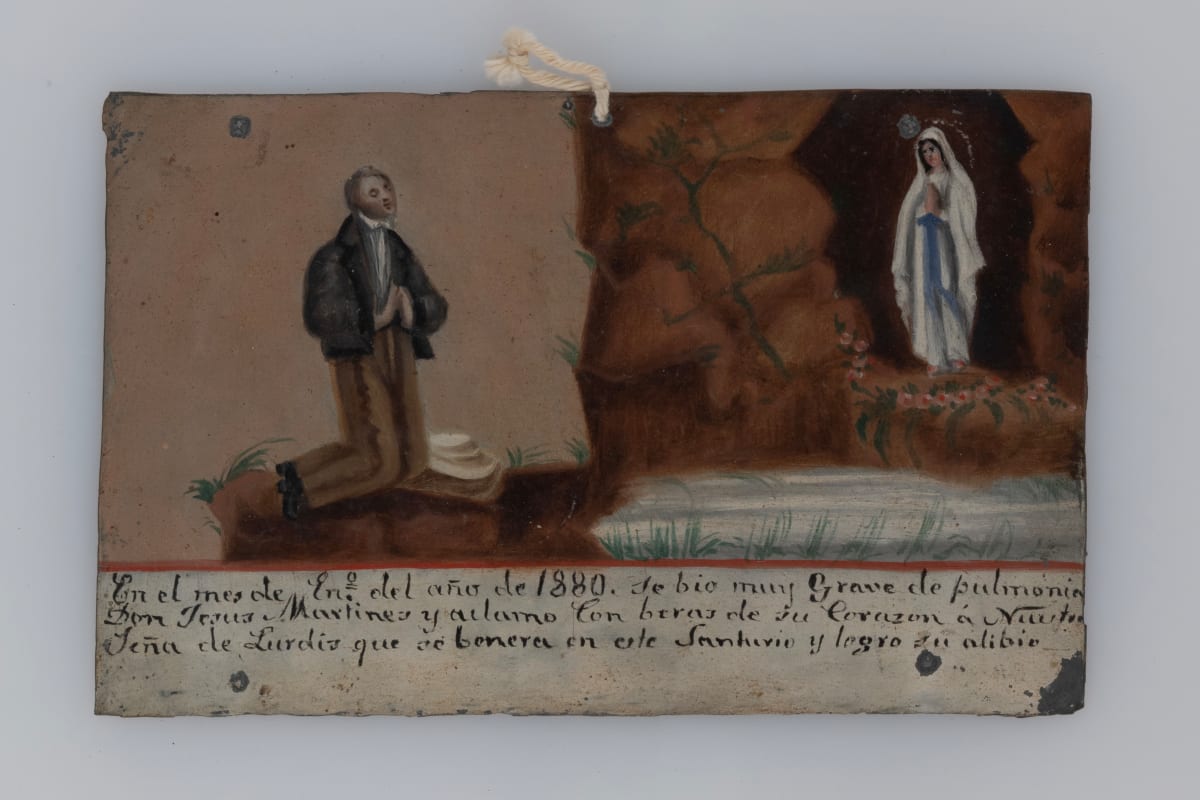 En el mes de En.º del año de 1880. se bio muy Grave de pulmonia
Don Jesus Martines y aclamo Con beras de su Corazon á Nuestr
Seña de Lurdis que se benera en este Santurio y logro su alibio